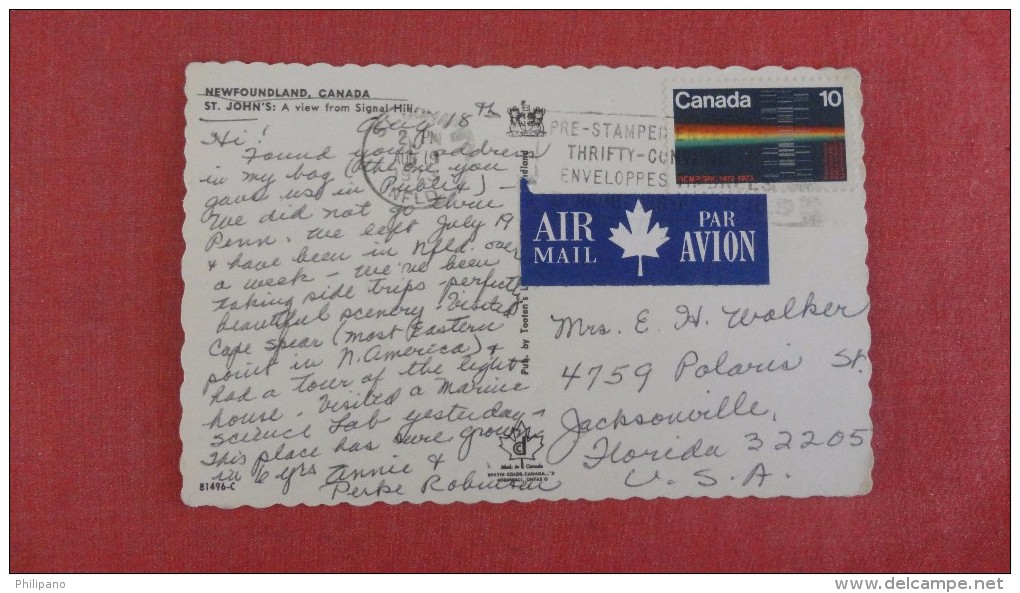 NEWFOUNDLAND, CANADA
ST. JOHN'S: A view from Signal Hill
Aug 18th
Hi!
Found your address
in my bag (the one you
gave us in Publix) -
We did not go thru
Penn. We left July 19
& have been in Nfld. over
a week - We've been
taking side trips - perfectly
beautiful scenery. Visited
Cape Spear (most Eastern
point in N. America) &
had a tour of the light
house. Visited a Marine
Science Lab yesterday -
This place has sure grown
in 6 yrs Annie &
Perke Robinson
81496-C
2 PM
AUG 19
NFLD
PRE-STAMPED
THRIFTY-
ENVELOPPES
Canada 10
AIR MAIL
PAR AVION
Pub. by Tooton's
Mrs. E. H. Walker
4759 Polaris St.
Jacksonville,
Florida 32205
U.S.A.
Made in Canada
Philipano
www.delcampe.net